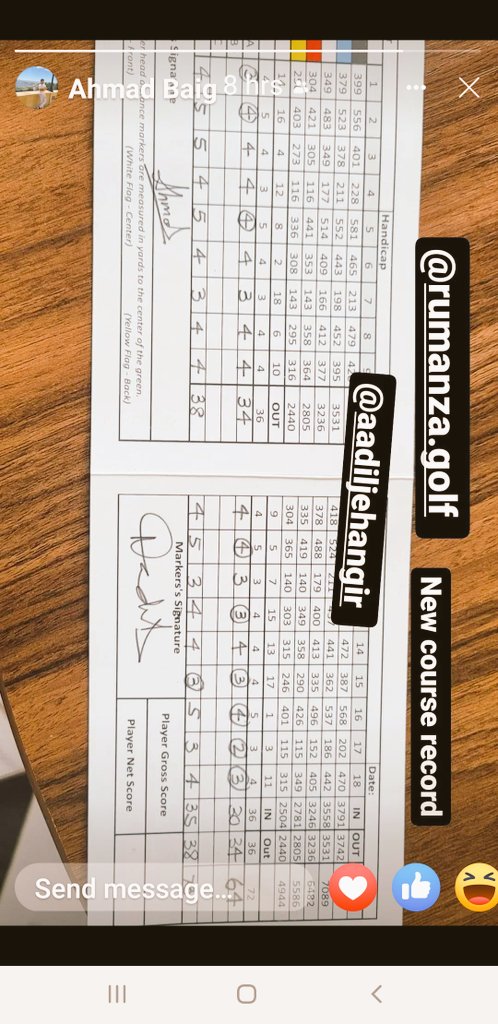 Ahmad Baig 8 hrs
@rumanza.golf
@aadiljehangir
New course record
Handicap
1 2 3 4 5 6 7 8
399 556 401 228 581 465 213 479
379 523 378 211 552 443 198 452 395 3531
349 483 349 177 514 409 166 412 377 3236
304 421 305 116 441 353 143 358 364 2805
403 273 116 336 308 143 295 316 2440
14 16 4 12 8 2 18 6 10 OUT
4 5 4 3 5 4 3 4 4 36
A 3 4 4 4 4 4 3 4 4 34
B 4 5 5 4 5 4 3 4 4 38
Signature
Ahmed
markers are measured in yards to the center of the green.
(White Flag - Center) (Yellow Flag - Back)
Date:
14 15 16 17 18 IN OUT
472 387 568 202 470 3791 3742
418 524 211 441 362 537 186 442 3558 3531 7089
378 488 179 400 413 335 496 152 405 3246 3236 6482
335 419 140 349 358 290 426 115 349 2781 2805 5586
304 365 140 303 315 246 401 115 315 2504 2440 4944
9 5 7 15 13 17 1 3 11 IN Out
4 5 3 4 4 4 5 3 4 36 36 72
4 4 3 3 4 3 4 2 3 30 34 64
4 5 3 4 4 3 5 3 4 35 38
Markers's Signature
Player Gross Score
Player Net Score
Send message...